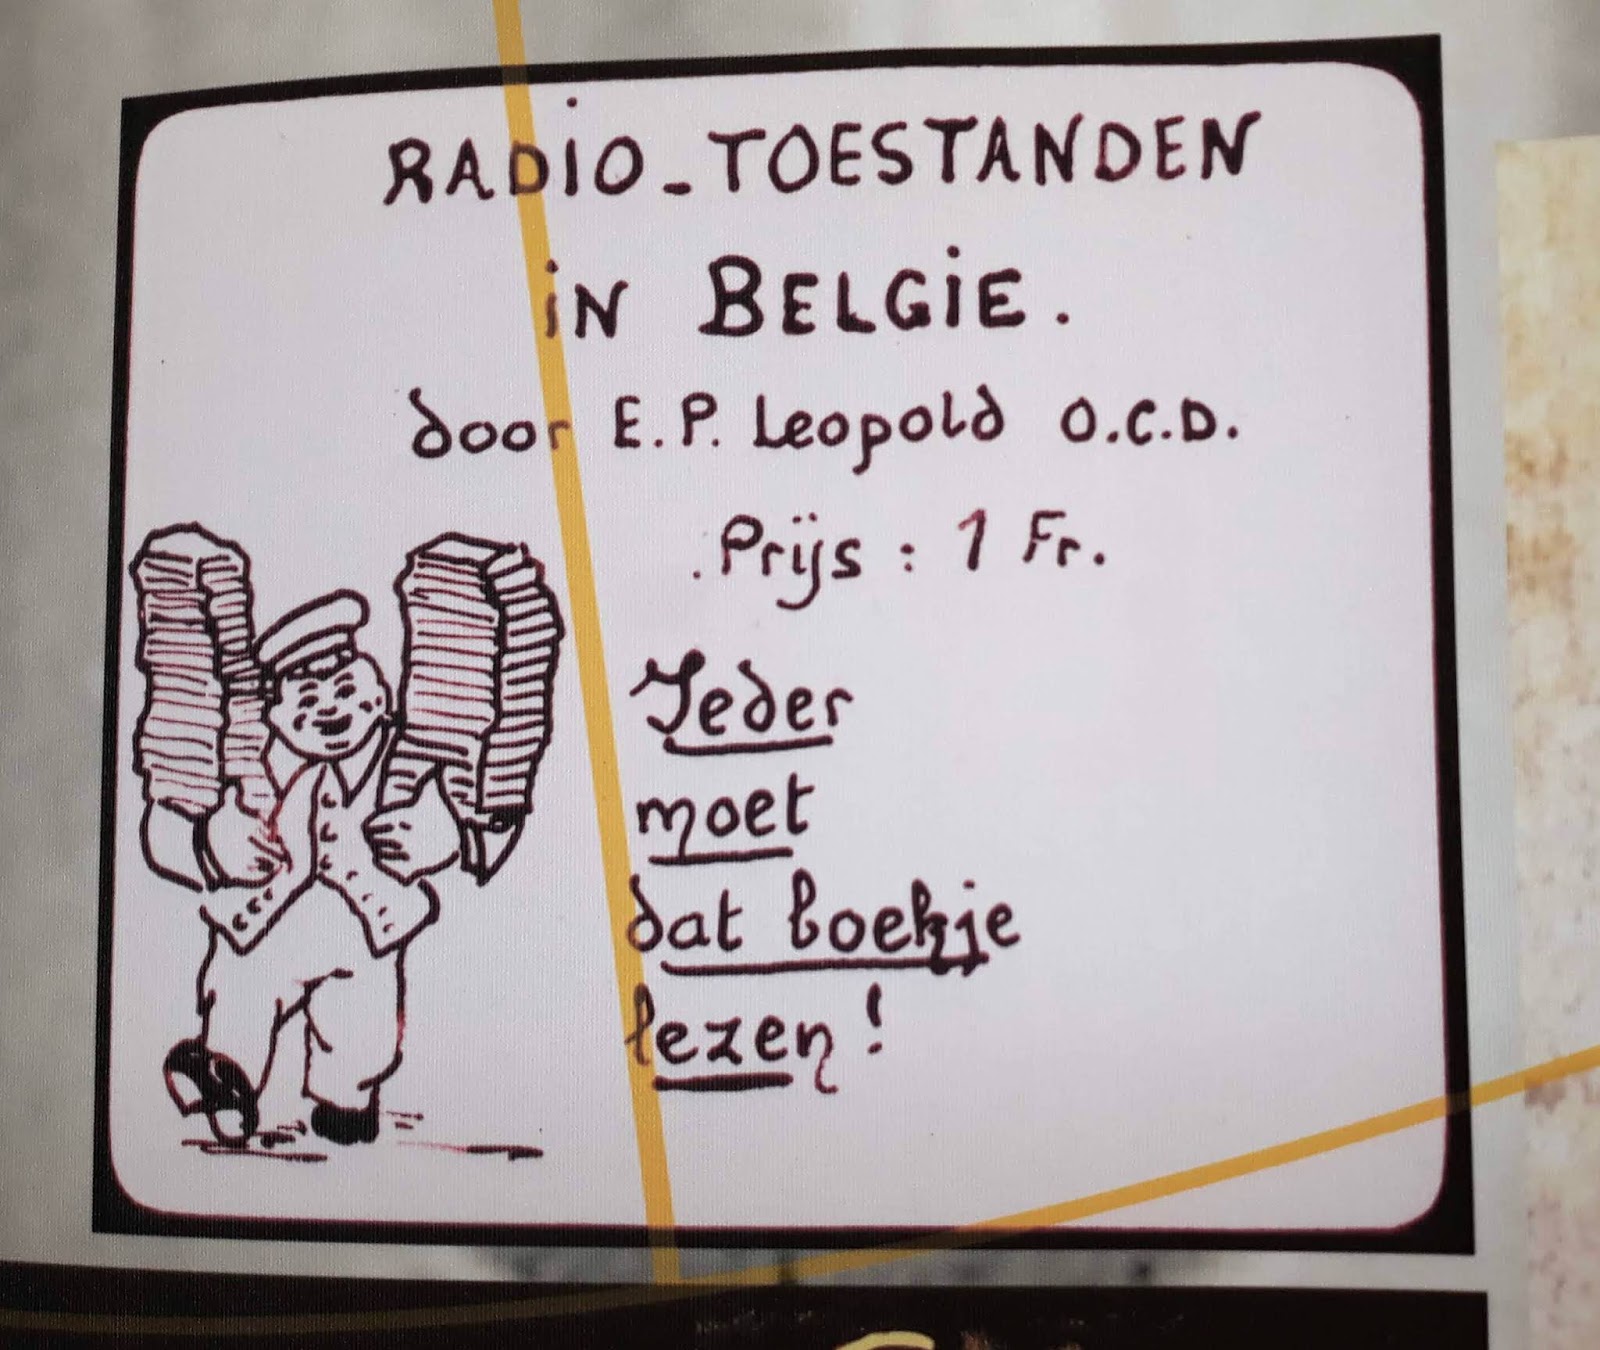 RADIO-TOESTANDEN
iN BELGiE.
door E.P. Leopold O.C.D.
Prijs : 1 Fr.
Ieder
moet
dat boekje
lezen!